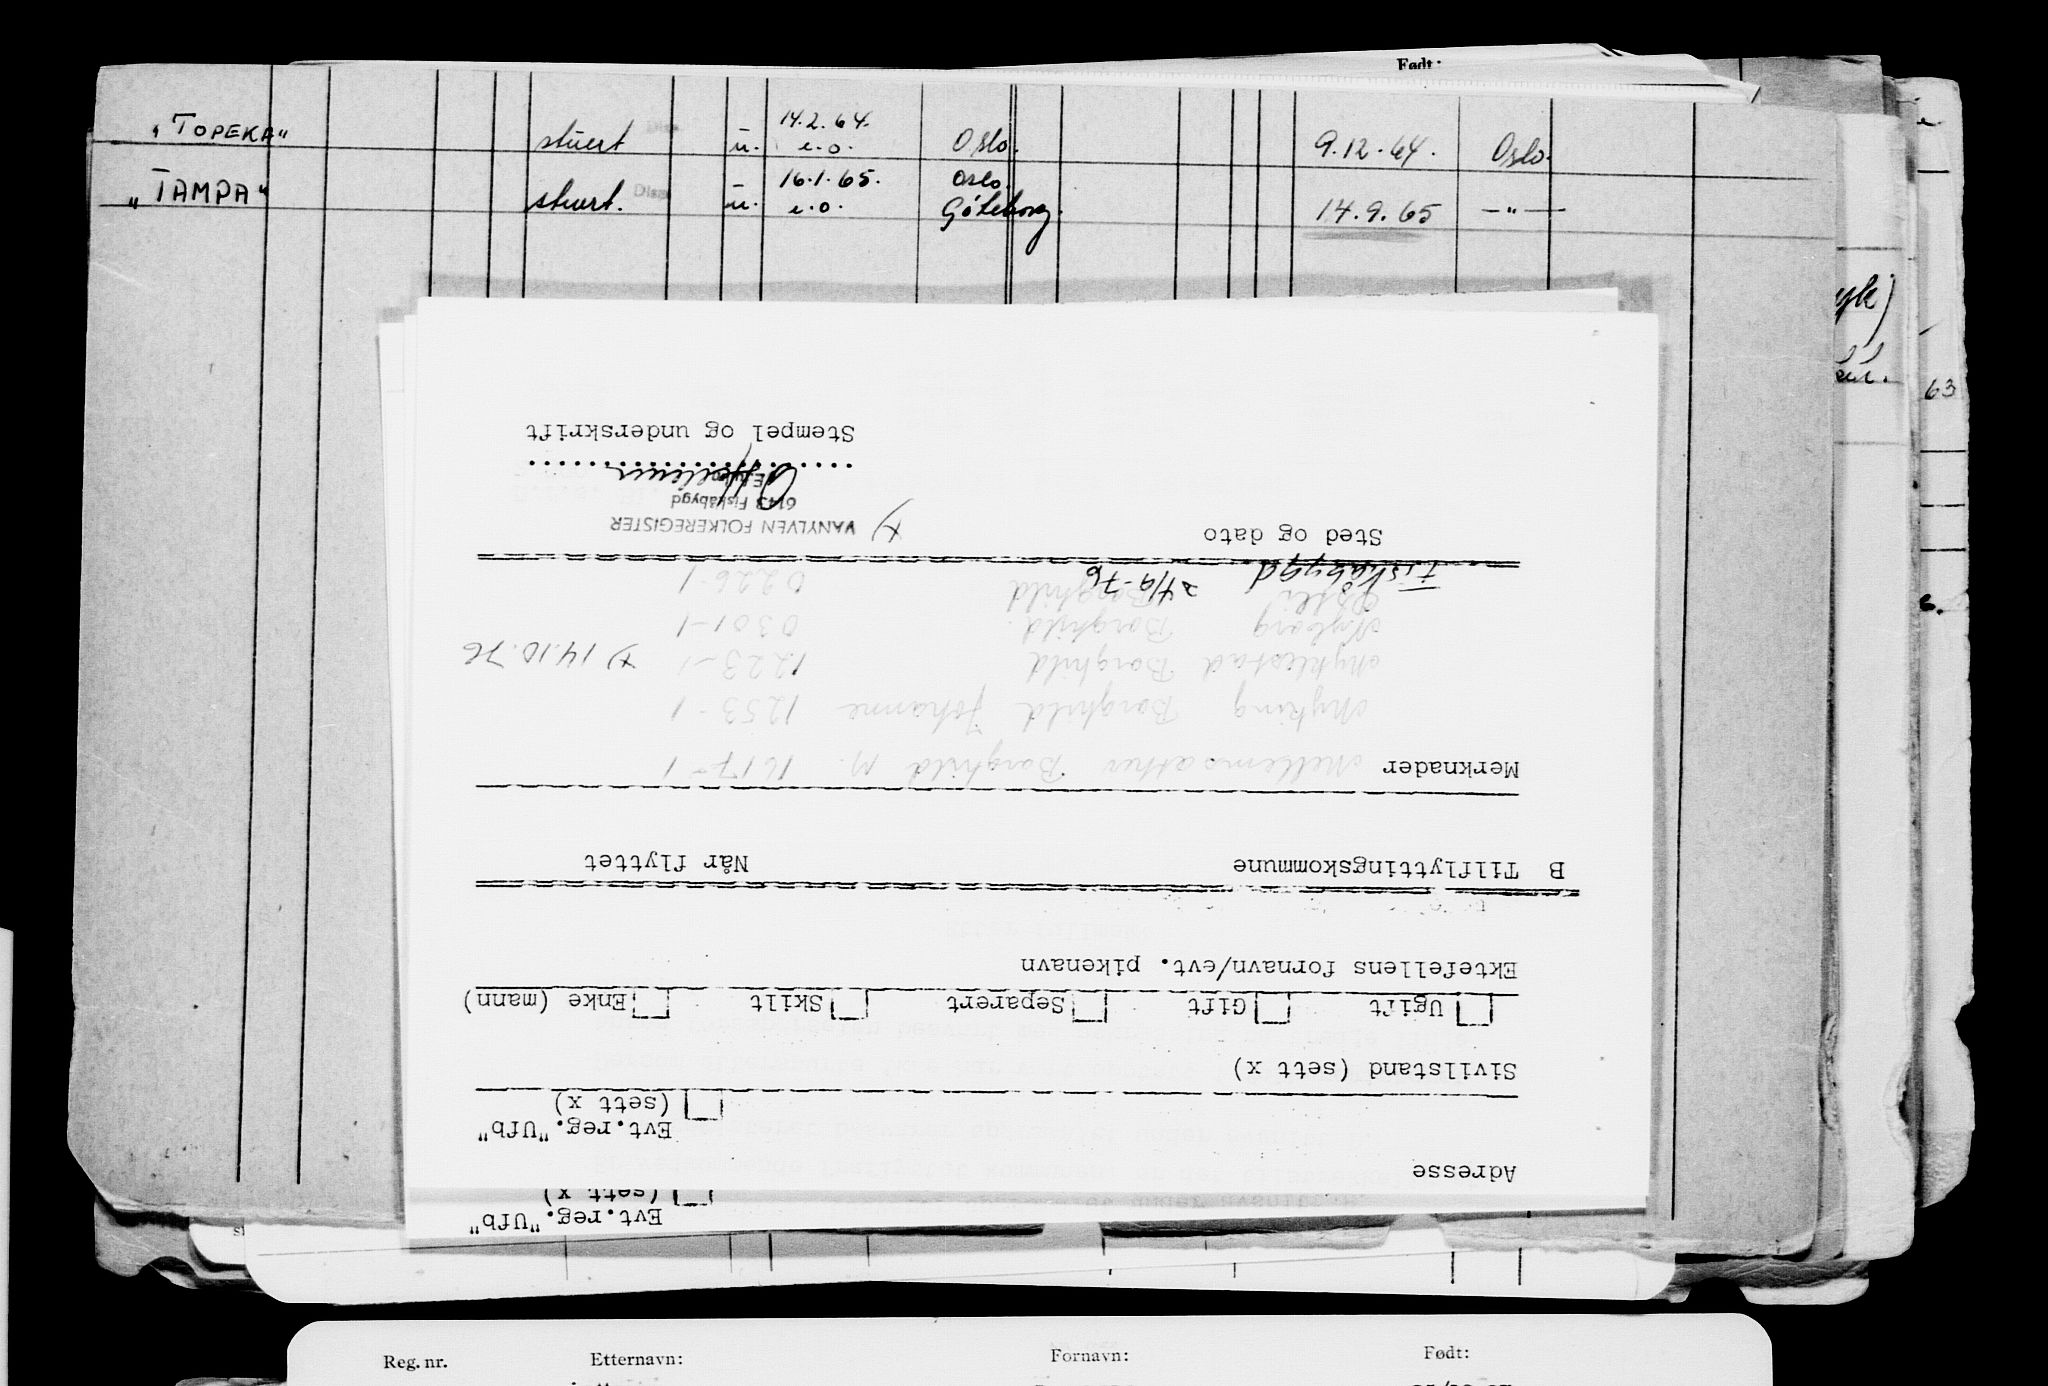 Født:
"TOPEKA" stuert u. 14.2.64. e.o. Oslo. 9.12.64. Oslo.
"TAMPA" stuert. u. 16.1.65. e.o. Oslo. Göteborg. 14.9.65 —"—
63
Adresse
Evt.reg."Ufb"
(sett x)
Sivilstand (sett x)
Ugift Gift Separert Skilt Enke (mann)
Ektefellens fornavn/evt. pikenavn
B Tilflyttingskommune Når flyttet
Merknader Mellemsæther Borghild M. 1617-1
Myking Borghild Johanne 1253-1
Myklestad Borghild 1223-1 x) 14.10.76
Nyborg Borghild. 0301-1
Østli Borghild 0226-1
Fiskåbygd 24/9-76
Sted og dato
x) VANYLVEN FOLKEREGISTER
6143 Fiskåbygd
Stempel og underskrift
Evt.reg."Ufb"
(sett x)
Reg. nr. Etternavn: Fornavn: Født: